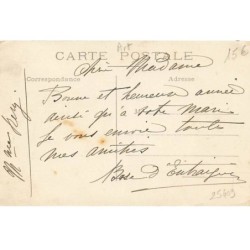 Art
156
CARTE POSTALE
Correspondance
Adresse
Chère Madame
Bonne et heureuse année
ainsi qu'à votre mari
Je vous envoie toutes
mes amitiés
Rose d'Entraigues